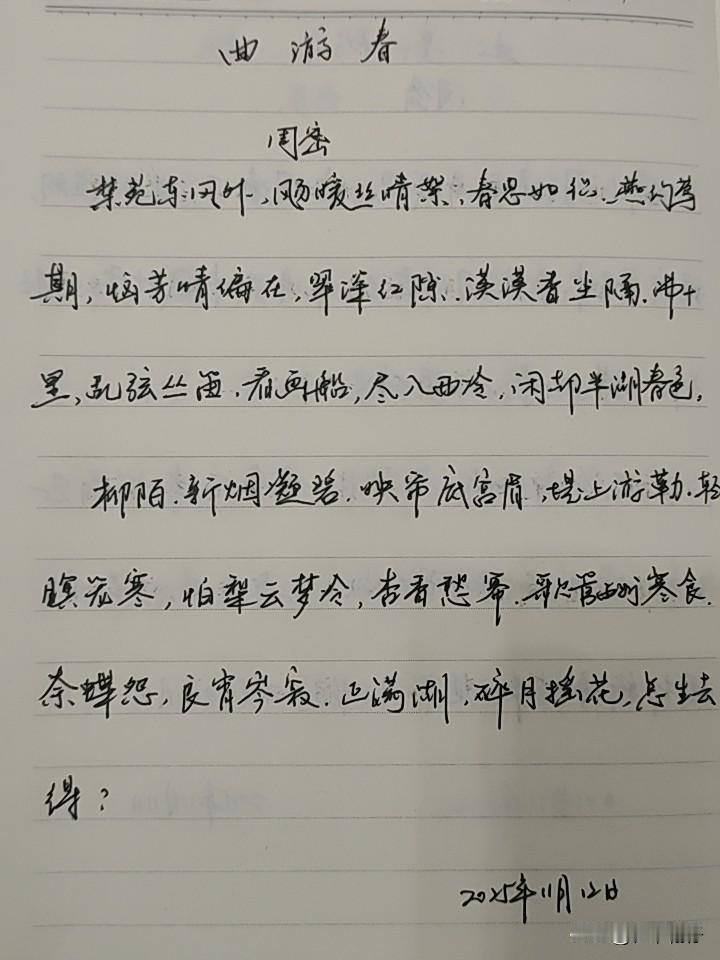 曲游春
周密
禁苑东风外,飏暖丝晴絮,春思如织.燕约莺
期,恼芳情偏在,翠深红隙.漠漠香尘隔.沸十
里,乱弦丛笛.看画船,尽入西泠,闲却半湖春色.
柳陌.新烟凝碧.映帘底宫眉,堤上游勒.轻
暝笼寒,怕梨云梦冷,杏香愁幂.歌管酬寒食.
奈蝶怨,良宵岑寂.正满湖,碎月摇花,怎生去
得?
2025年11月12日